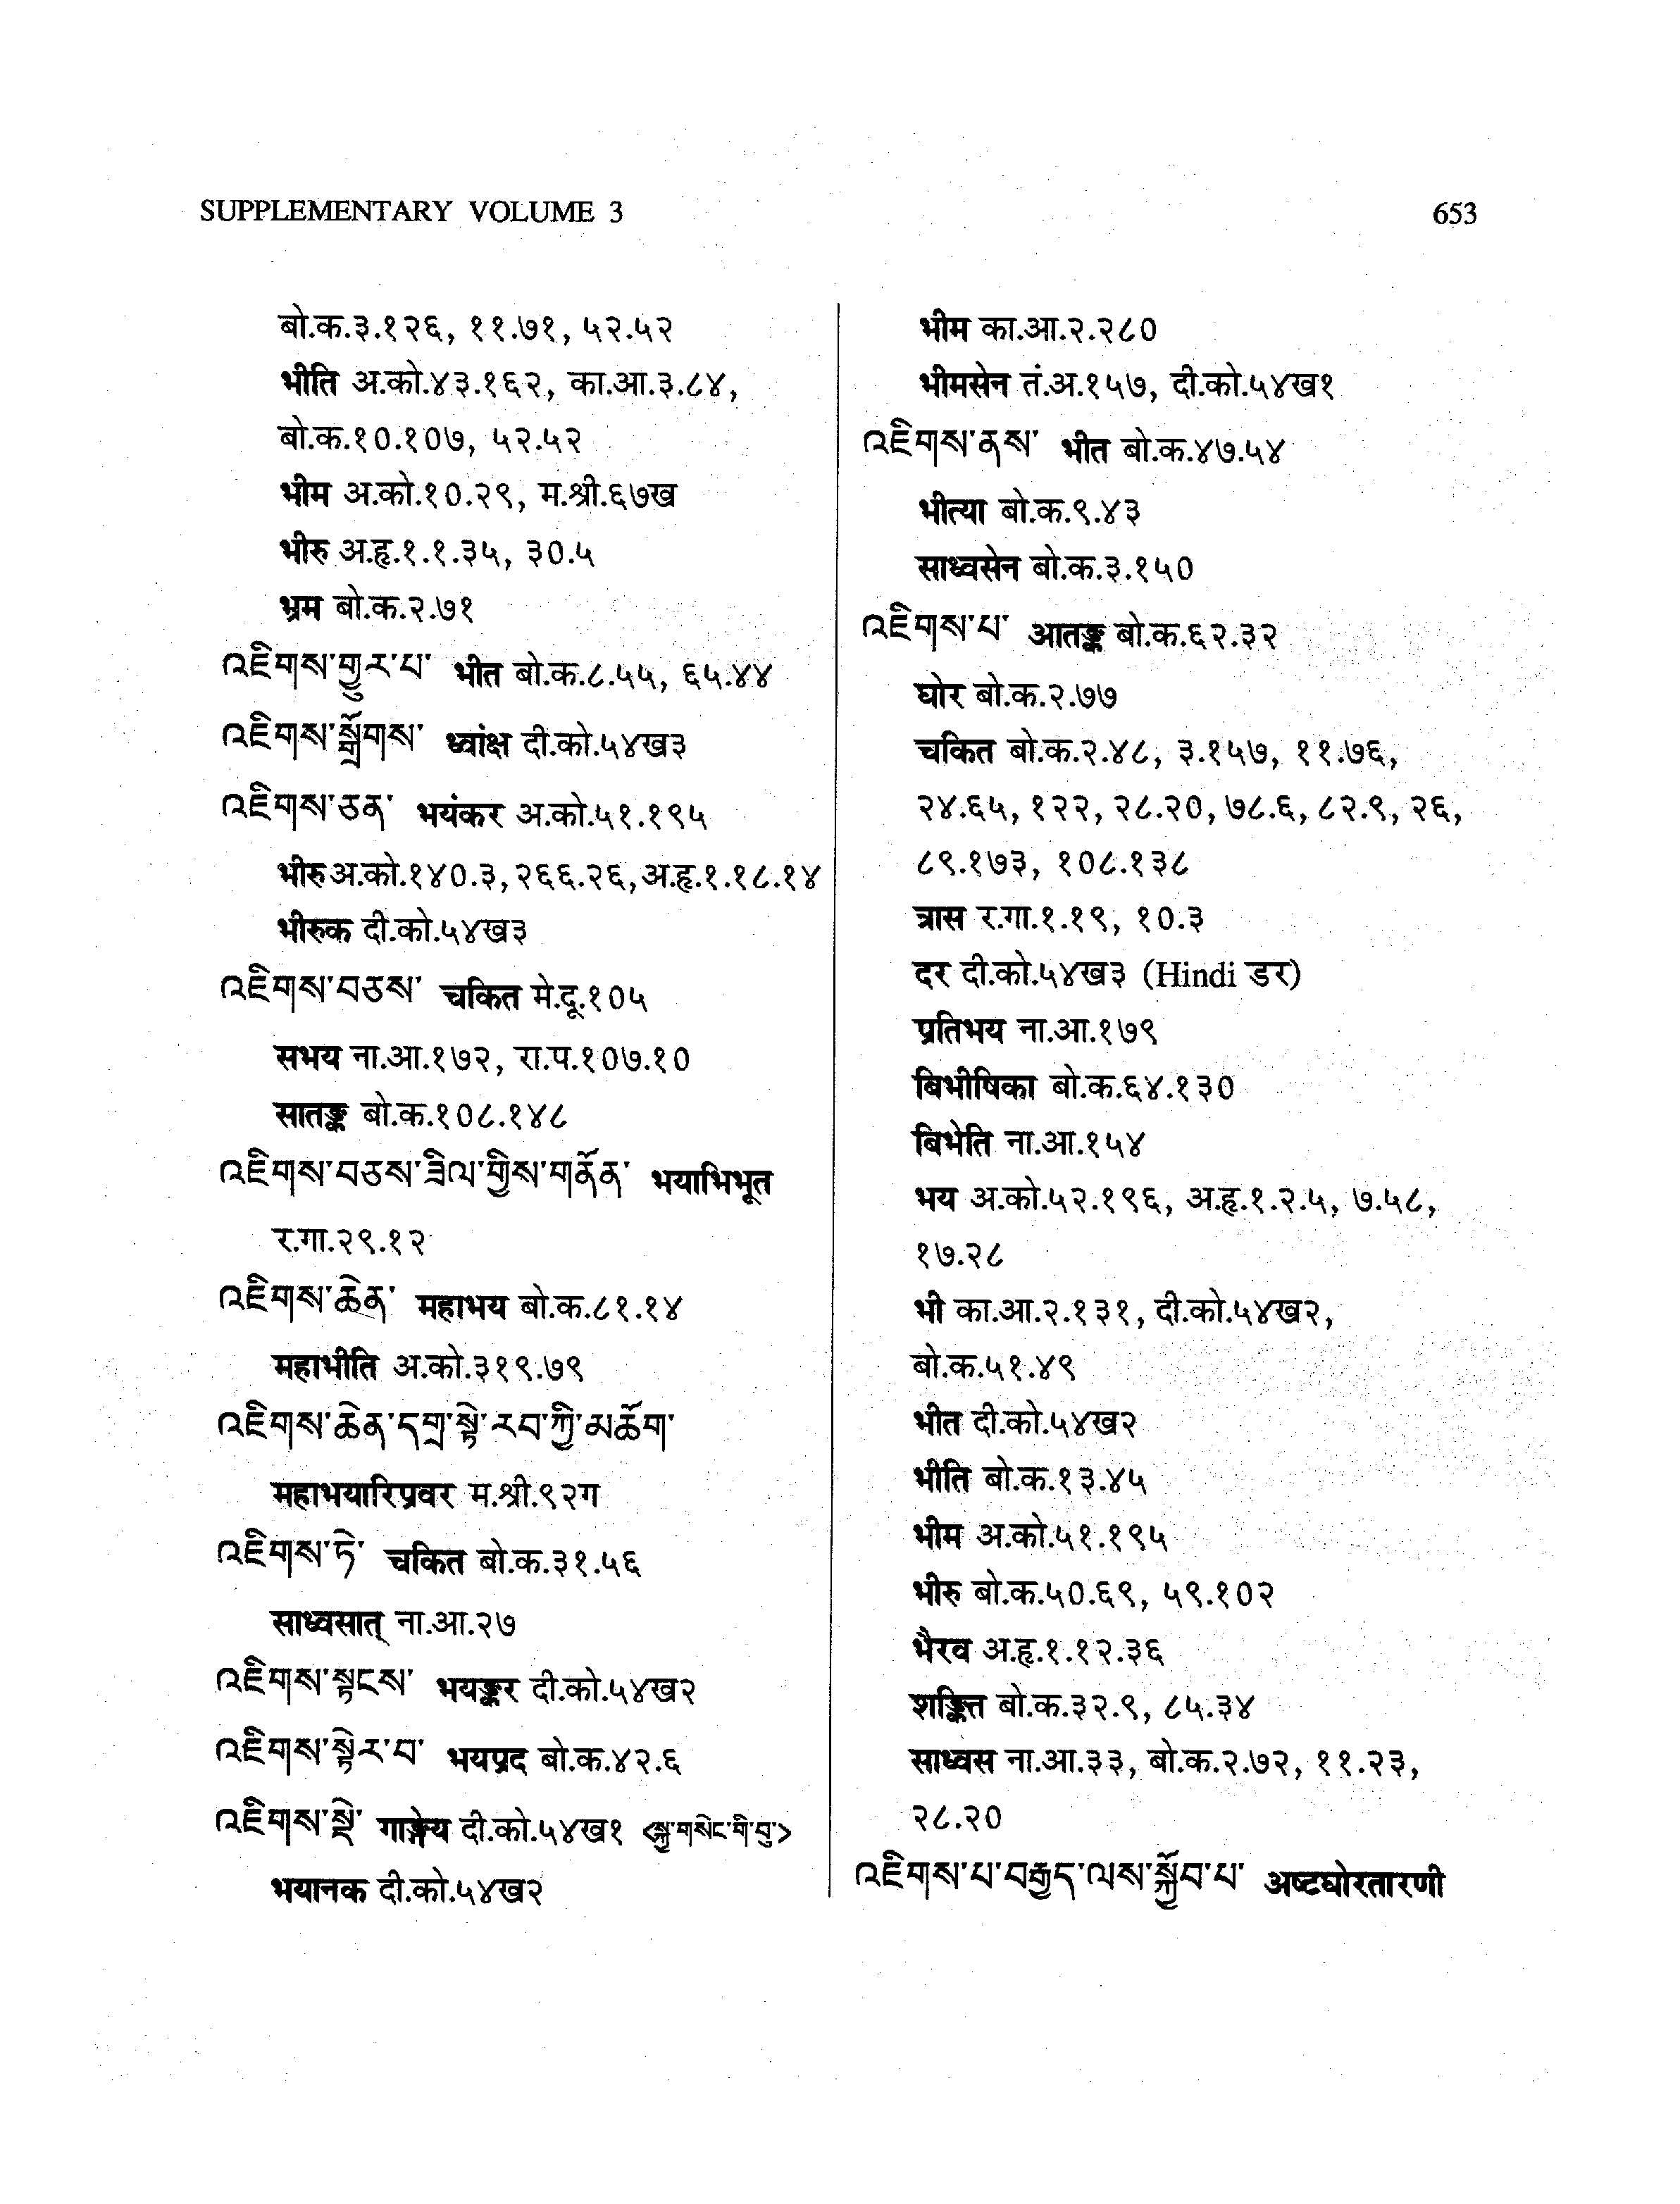 SUPPLEMENTARY VOLUME 3
653
बो.क.३.१२६, ११.७१, ५२.५२
भीति अ.को.४३.१६२, का.आ.३.८४,
बो.क.१०.१०७, ५२.५२
भीम अ.को.१०.२९, म.श्री.६७ख
भीरु अ.हृ.१.१.३५, ३०.५
भ्रम बो.क.२.७१
འཇིགས་གྱུར་པ་ भीत बो.क.८.५५, ६५.४४
འཇིགས་སྒྲོགས་ ध्वांक्ष दी.को.५४ख३
འཇིགས་ཅན་ भयंकर अ.को.५१.१९५
भीरु अ.को.१४०.३, २६६.२६, अ.हृ.१.१८.१४
भीरुक दी.को.५४ख३
འཇིགས་བཅས་ चकित मे.दू.१०५
सभय ना.आ.१७२, रा.प.१०७.१०
सातङ्क बो.क.१०८.१४८
འཇིགས་བཅས་ཟིལ་གྱིས་གནོན་ भयाभिभूत
र.गा.२९.१२
འཇིགས་ཆེན་ महाभय बो.क.८१.१४
महाभीति अ.को.३१९.७९
འཇིགས་ཆེན་དགྲ་སྟེ་རབ་ཀྱི་མཆོག་
महाभयारिप्रवर म.श्री.९२ग
འཇིགས་ཏེ་ चकित बो.क.३१.५६
साध्वसात् ना.आ.२७
འཇིགས་སྟངས་ भयङ्कर दी.को.५४ख२
འཇིགས་སྟེར་བ་ भयप्रद बो.क.४२.६
འཇིགས་སྡེ་ गाङ्गेय दी.को.५४ख१ <སྐྱ་གསེང་གི་བུ་>
भयानक दी.को.५४ख२
भीम का.आ.२.२८०
भीमसेन तं.अ.१५७, दी.को.५४ख१
འཇིགས་ནས་ भीत बो.क.४७.५४
भीत्या बो.क.९.४३
साध्वसेन बो.क.३.१५०
འཇིགས་པ་ आतङ्क बो.क.६२.३२
घोर बो.क.२.७७
चकित बो.क.२.४८, ३.१५७, ११.७६,
२४.६५, १२२, २८.२०, ७८.६, ८२.९, २६,
८९.१७३, १०८.१३८
त्रास र.गा.१.१९, १०.३
दर दी.को.५४ख३ (Hindi डर)
प्रतिभय ना.आ.१७९
बिभीषिका बो.क.६४.१३०
बिभेति ना.आ.१५४
भय अ.को.५२.१९६, अ.हृ.१.२.५, ७.५८,
१७.२८
भी का.आ.२.१३१, दी.को.५४ख२,
बो.क.५१.४९
भीत दी.को.५४ख२
भीति बो.क.१३.४५
भीम अ.को.५१.१९५
भीरु बो.क.५०.६९, ५९.१०२
भैरव अ.हृ.१.१२.३६
शङ्कित बो.क.३२.९, ८५.३४
साध्वस ना.आ.३३, बो.क.२.७२, ११.२३,
२८.२०
འཇིགས་པ་བརྒྱད་ལས་སྐྱོབ་པ་ अष्टघोरतारणी